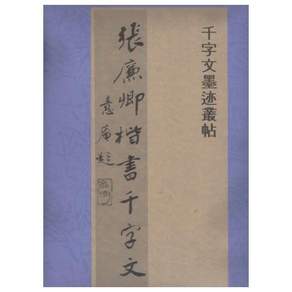 千字文墨迹叢帖
張廉卿楷書千字文